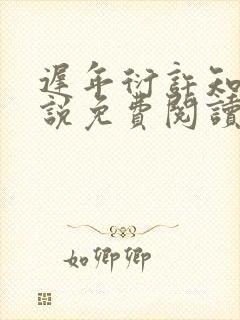 遲年衍許知
說免費閱讀
如卿卿